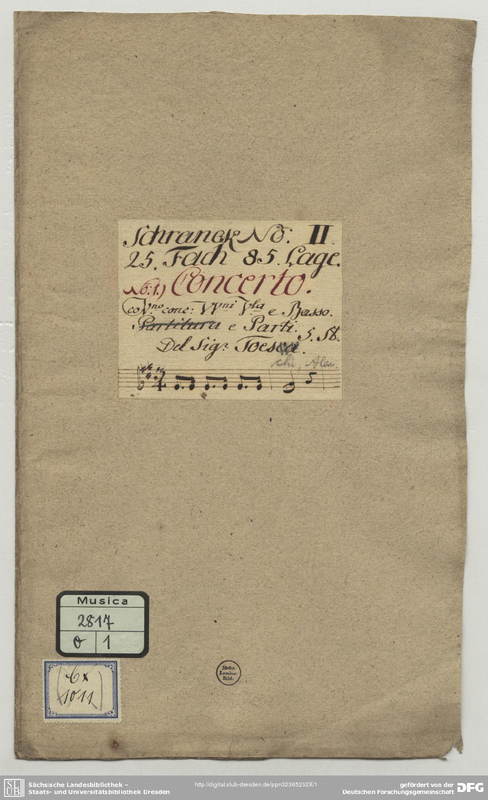 Schranck No. II.
25. Fach 85. Lage.
No: 1.) Concerto.
co V.no conc: VV.ni V.la e Basso.
Partitura e Parti. 5. St.
Del Sigr. Toesca.
chi, Ales.
Musica
2817
O 1
Cx
1011
Sächs.
Landes-
Bibl.
SLUB
Sächsische Landesbibliothek –
Staats- und Universitätsbibliothek Dresden
http://digital.slub-dresden.de/ppn32365202X/1
gefördert von der
Deutschen Forschungsgemeinschaft DFG